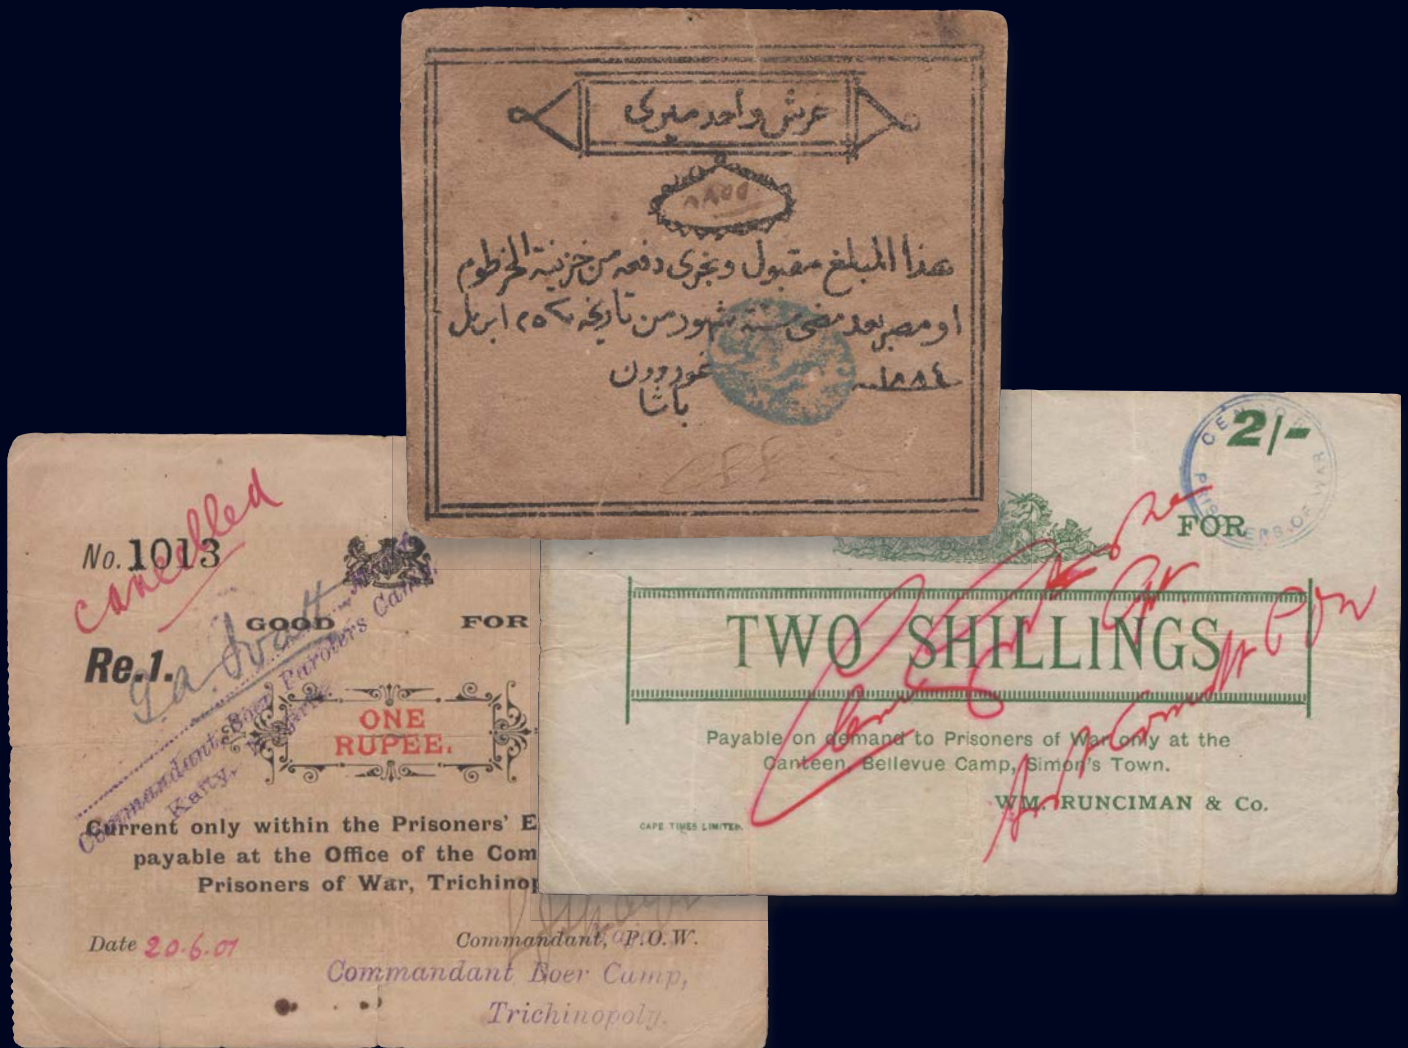 غرش واحد ميرى
هذا المبلغ مقبول ويجرى دفعه من خزينة الخرطوم
او مصر بعد مضى ستة شهور من تاريخه ٢٥ ابريل
١٨٨٤ غوردون
باشا
cancelled
No. 1013
GOOD FOR
Re.1.
ONE
RUPEE.
Commandant, Boer Paroler's Camp,
Kaity,
Current only within the Prisoners' E
payable at the Office of the Com
Prisoners of War, Trichinop
Date 20.6.01
Commandant, P.O.W.
Commandant Boer Camp,
Trichinopoly.
CENSOR
PRISONERS OF WAR
2/-
FOR
TWO SHILLINGS
Payable on demand to Prisoners of War only at the
Canteen, Bellevue Camp, Simon's Town.
WM. RUNCIMAN & Co.
CAPE TIMES LIMITED.